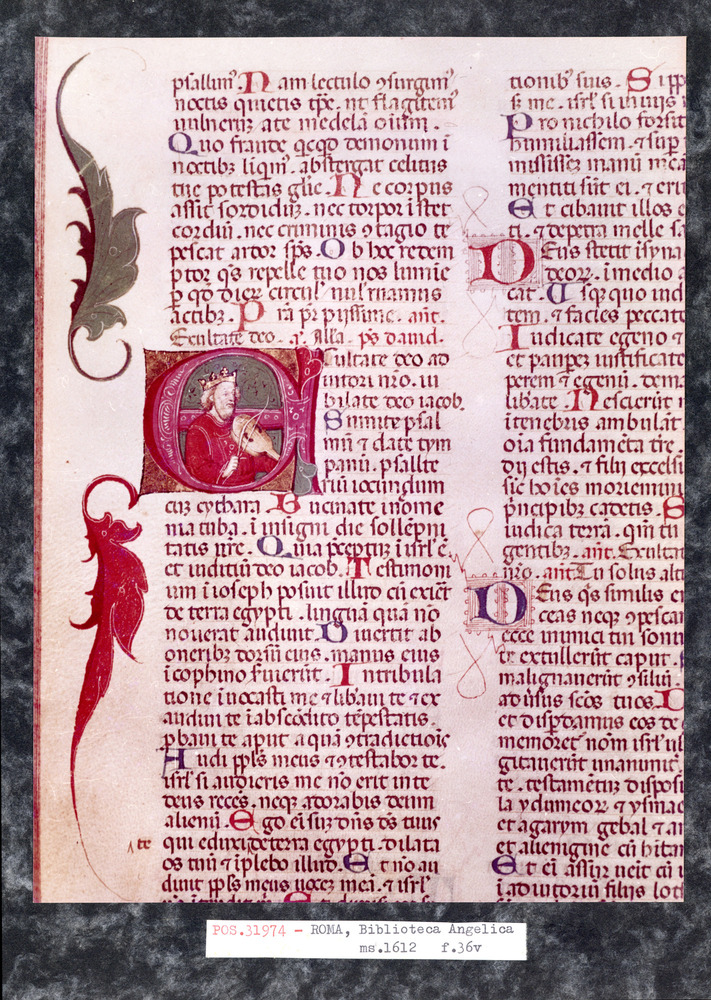 psallim᷑. Nam lectulo ꝯsurgim᷑
noctis quietis tp̄e. ut flagitem᷑
uulneruʒ a te medelā oīum.
Quo fraude qcqd demonum ī
noctibʒ liqim᷑. abstergat celitus
tue potestas glīe. Ne corpus
assit sordiduʒ. nec torpor īstet
cordiū. nec criminis ꝯtagio te
pescat ardor sp̄s. Ob hoc redem
ptor q̄s repelle tuo nos lumīe
p qd dier circul᷑ nul ruamus
actibʒ. Prā pr̄ pijssime. ant̄.
Exultate deo. a. Alla. ps dauid.
Exultate deo ad
iutori nr̄o. iu
bilate deo iacob.
Sumite psal
mū ⁊ date tym
panū. psalte
riū iocundum
cuʒ cythara. Bucinate inome
nia tuba. ī insigni die sollēpni
tatis ur̄e. Quia pceptuʒ ī isrl̄ ē.
et iuditiū deo iacob. Testimoni
um ī ioseph posuit illud cū exiēt
de terra egypti. linguā quā nō
nouerat audiuit. Diuertit ab
oneribʒ dorsū eius. manus eius
ī cophino seruierūt. In tribula
tione īuocasti me ⁊ libaui te ⁊ ex
audiui te ī abscōdito tēpestatis.
pbaui te aput aquā ꝯtradictiōis
Audi pp̄ls meus ⁊ ꝯtestabor te.
isrl̄ si audieris me nō erit in te
deus recēs. neqʒ adorabis deum
alienū. Ego eī suʒ dn̄s ds̄ tuus
te
qui eduxi de terra egypti. dilata
os tuū ⁊ īplebo illud. Et nō au
diuit pp̄ls meus uocē meā. ⁊ isrl̄
tionibʒ suis. Si pp
Pro nichilo forsit
humiliassem. ⁊ sup
misissēʒ manū meā
mentiti sūt ei. ⁊ erit
Et cibauit illos e
ti. ⁊ de petra melle sa
Deus stetit ī syna
deorꝝ. ī medio a
cat. Usqʒ quo iud
tem. ⁊ facies peccato
Iudicate egeno ⁊
et paupeʒ iustificate
perem ⁊ egenū. dema
libate. Nescierūt n
ī tenebris ambulāt
oīa fundamēta tr̄e
dij estis. ⁊ filij excelsi
sic hoīes moriemini
pncipibʒ cadetis. S
iudica terrā. qm̄ tu
gentibʒ. ant̄. Exultat
nr̄o. ant̄. Tu solus alti
Deus q̄s similis er
ceas neqʒ ꝯpescar
ecce inimici tui sonu
te extullerūt caput.
malignauerūt ꝯsiliū.
aduīsus scōs tuos.
et disp̄damus eos de
memoret᷑ nom̄ isrl̄ ul
gitauerūt unanimit᷑.
te. testamētuʒ disposu
la ydumeorꝝ ⁊ ysmae
et agarym gebal ⁊ am
et alienigine cū hitan
Et eī assur ueīt cū i
ī adiutoriū filijs loth
POS.31974 - ROMA, Biblioteca Angelica
ms.1612 f.36v